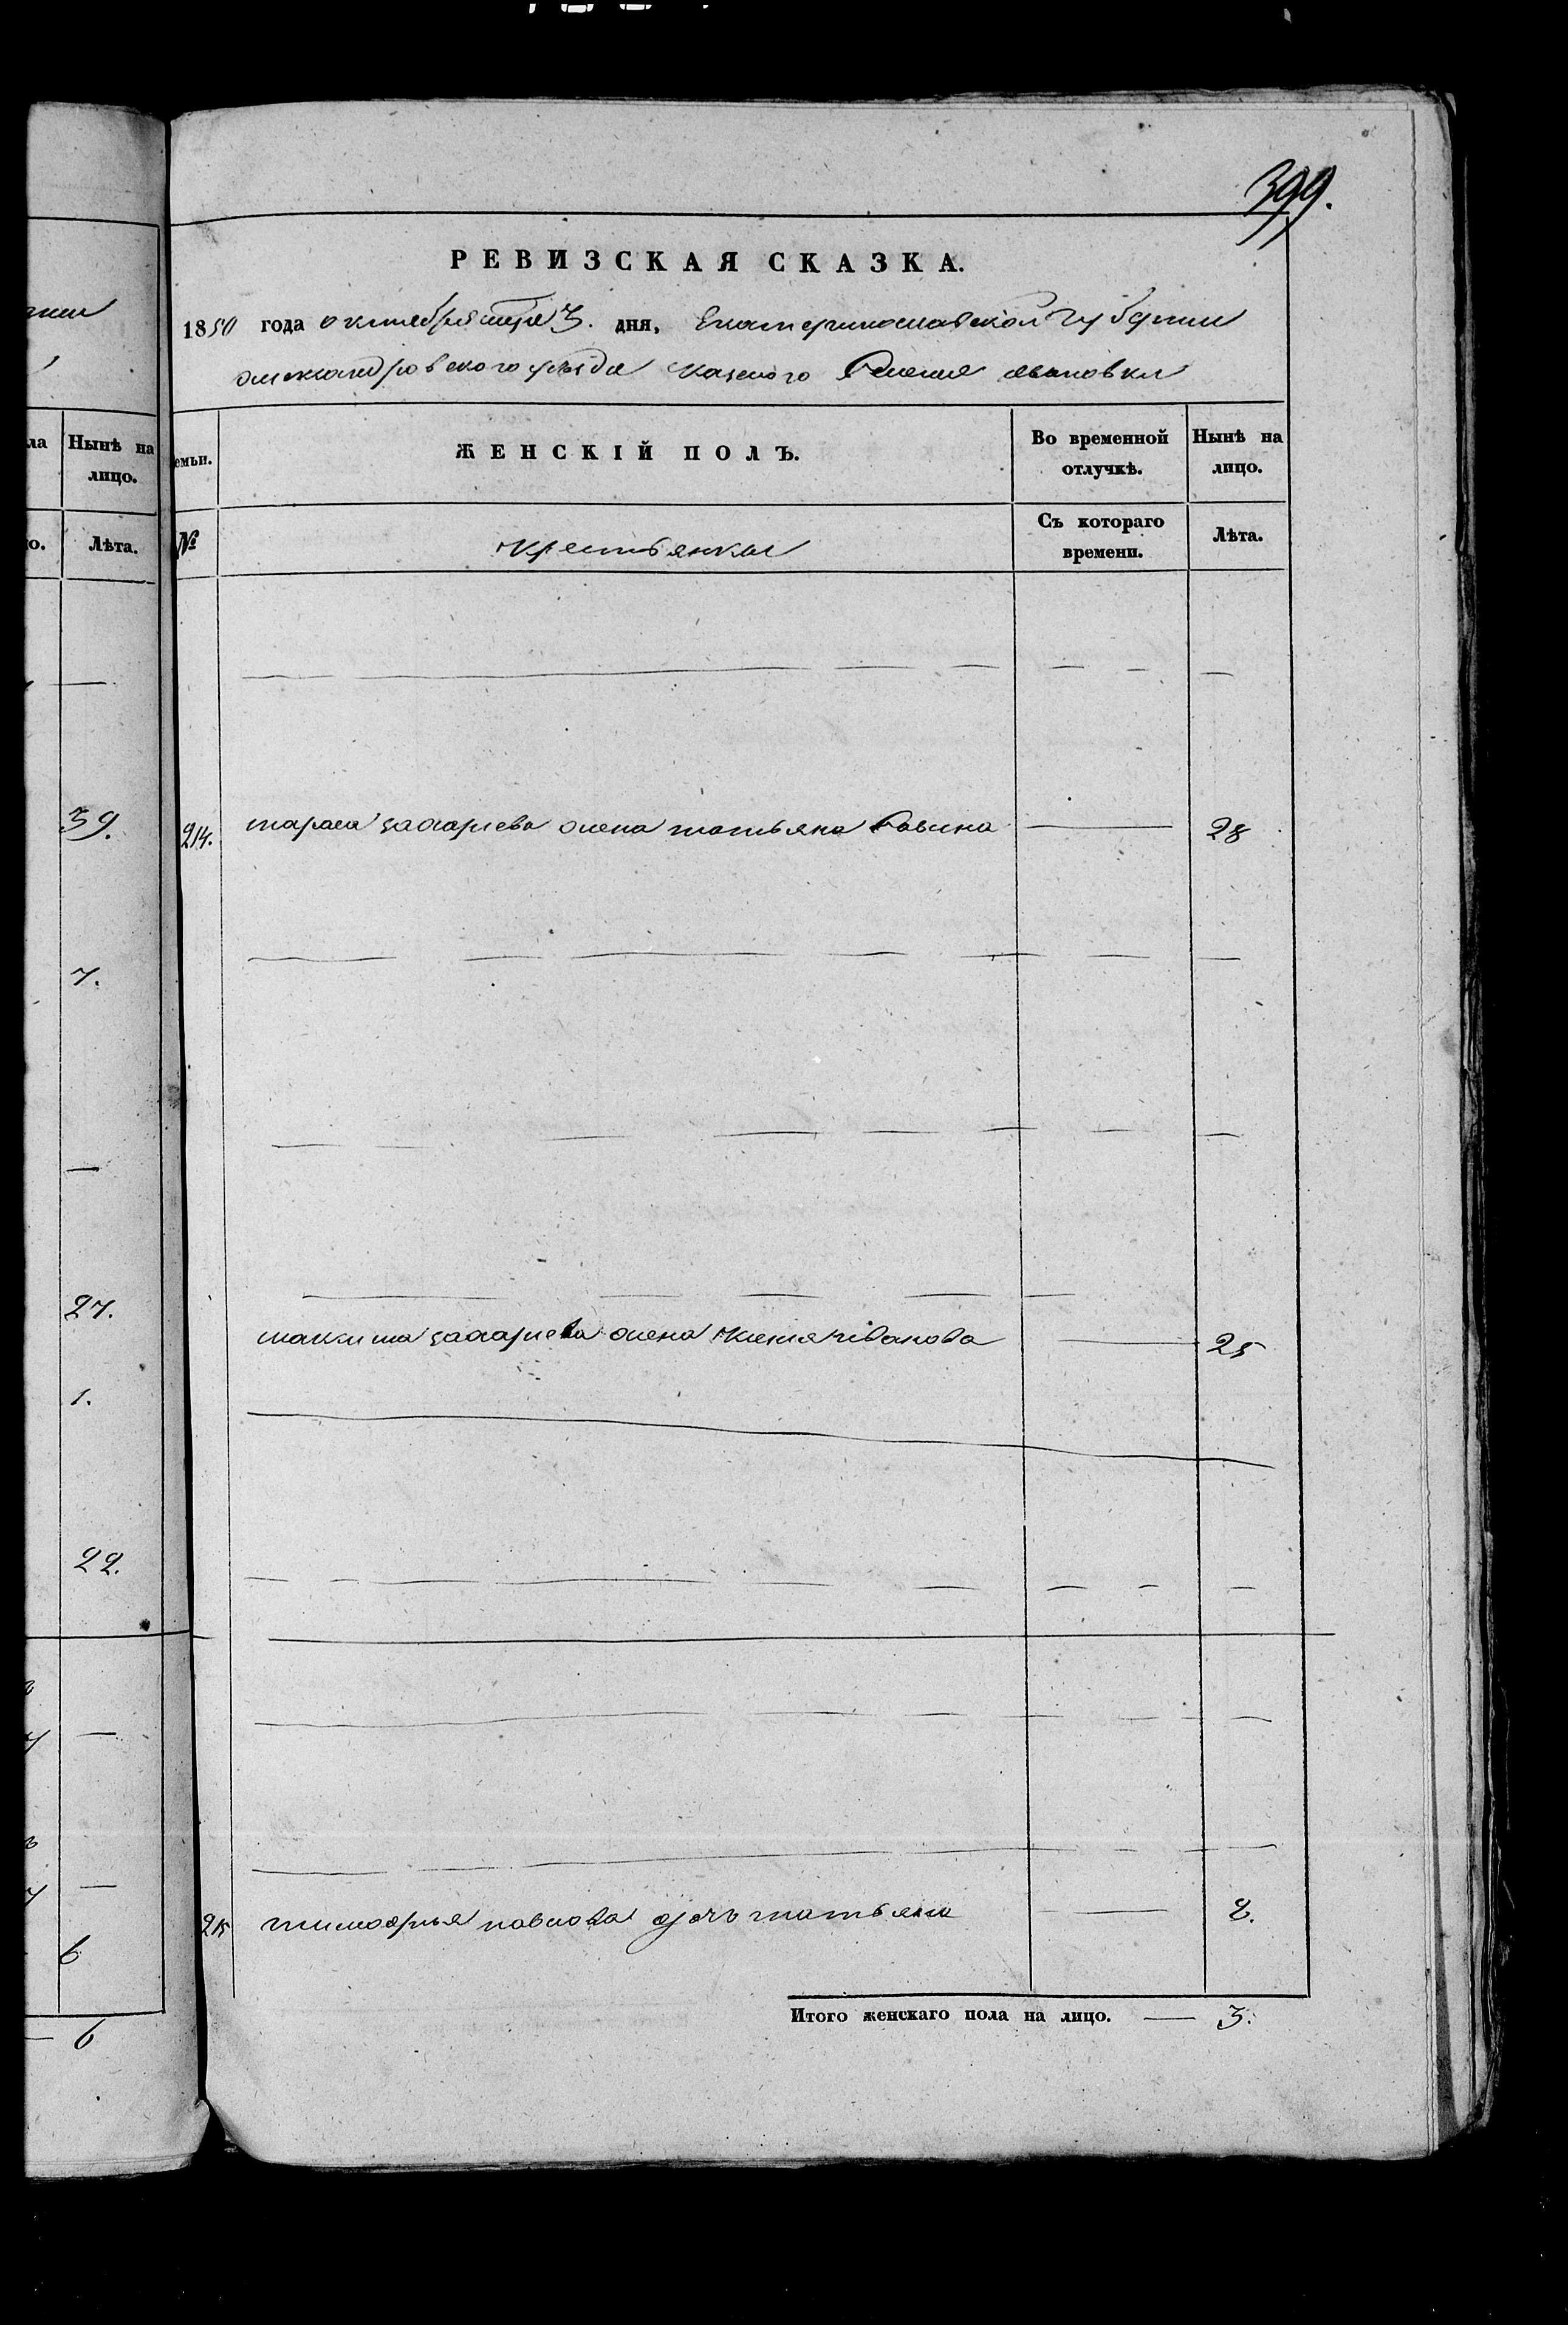 399.
РЕВИЗСКАЯ СКАЗКА.
1850 года октября 3. дня, Екатеринославской губернии
александровского уезда казеного Селения
ла
Нынѣ на лицо.
емьи.
ЖЕНСКІЙ ПОЛЪ.
Во временной отлучкѣ.
Нынѣ на лицо.
о.
Лѣта.
№
крестьянки
Съ котораго времени.
Лѣта.
39.
214. тараса захариева жена татьяна Савина — 28
7.
27.
максима захариева жена иванова — 25
1.
22.
215 тимофья павлова дочь татьяна — 2.
6
Итого женскаго пола на лицо. — 3.
6